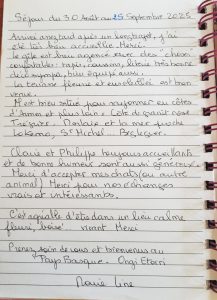 Séjour du 30 Août au 25 Septembre 2025
Arrivée après un long trajet, j'ai
été très bien accueillie. Merci.
Le gîte est bien agencé avec des choses
confortables : tapis, coussins, literie très bonne
bien équipé aussi.
La terrasse fleurie et ensoleillée est bien
venue.
bien située pour rayonner en côtes
d'Armor et plus loin. Côte de granit rose
Tréguier. la mer proche
St Michel. Bréhec.
Claire et Philippe toujours accueillants
et de bonne humeur sont aussi généreux.
Merci d'accepter mes chats (ou autre
animal). Merci pour nos échanges
vrais et intéressants.
C'est agréable d'être dans un lieu calme
fleuri, boisé, vivant. Merci
Prenez soin de vous et bienvenue au
Pays Basque. Ongi Etorri
Marie Line